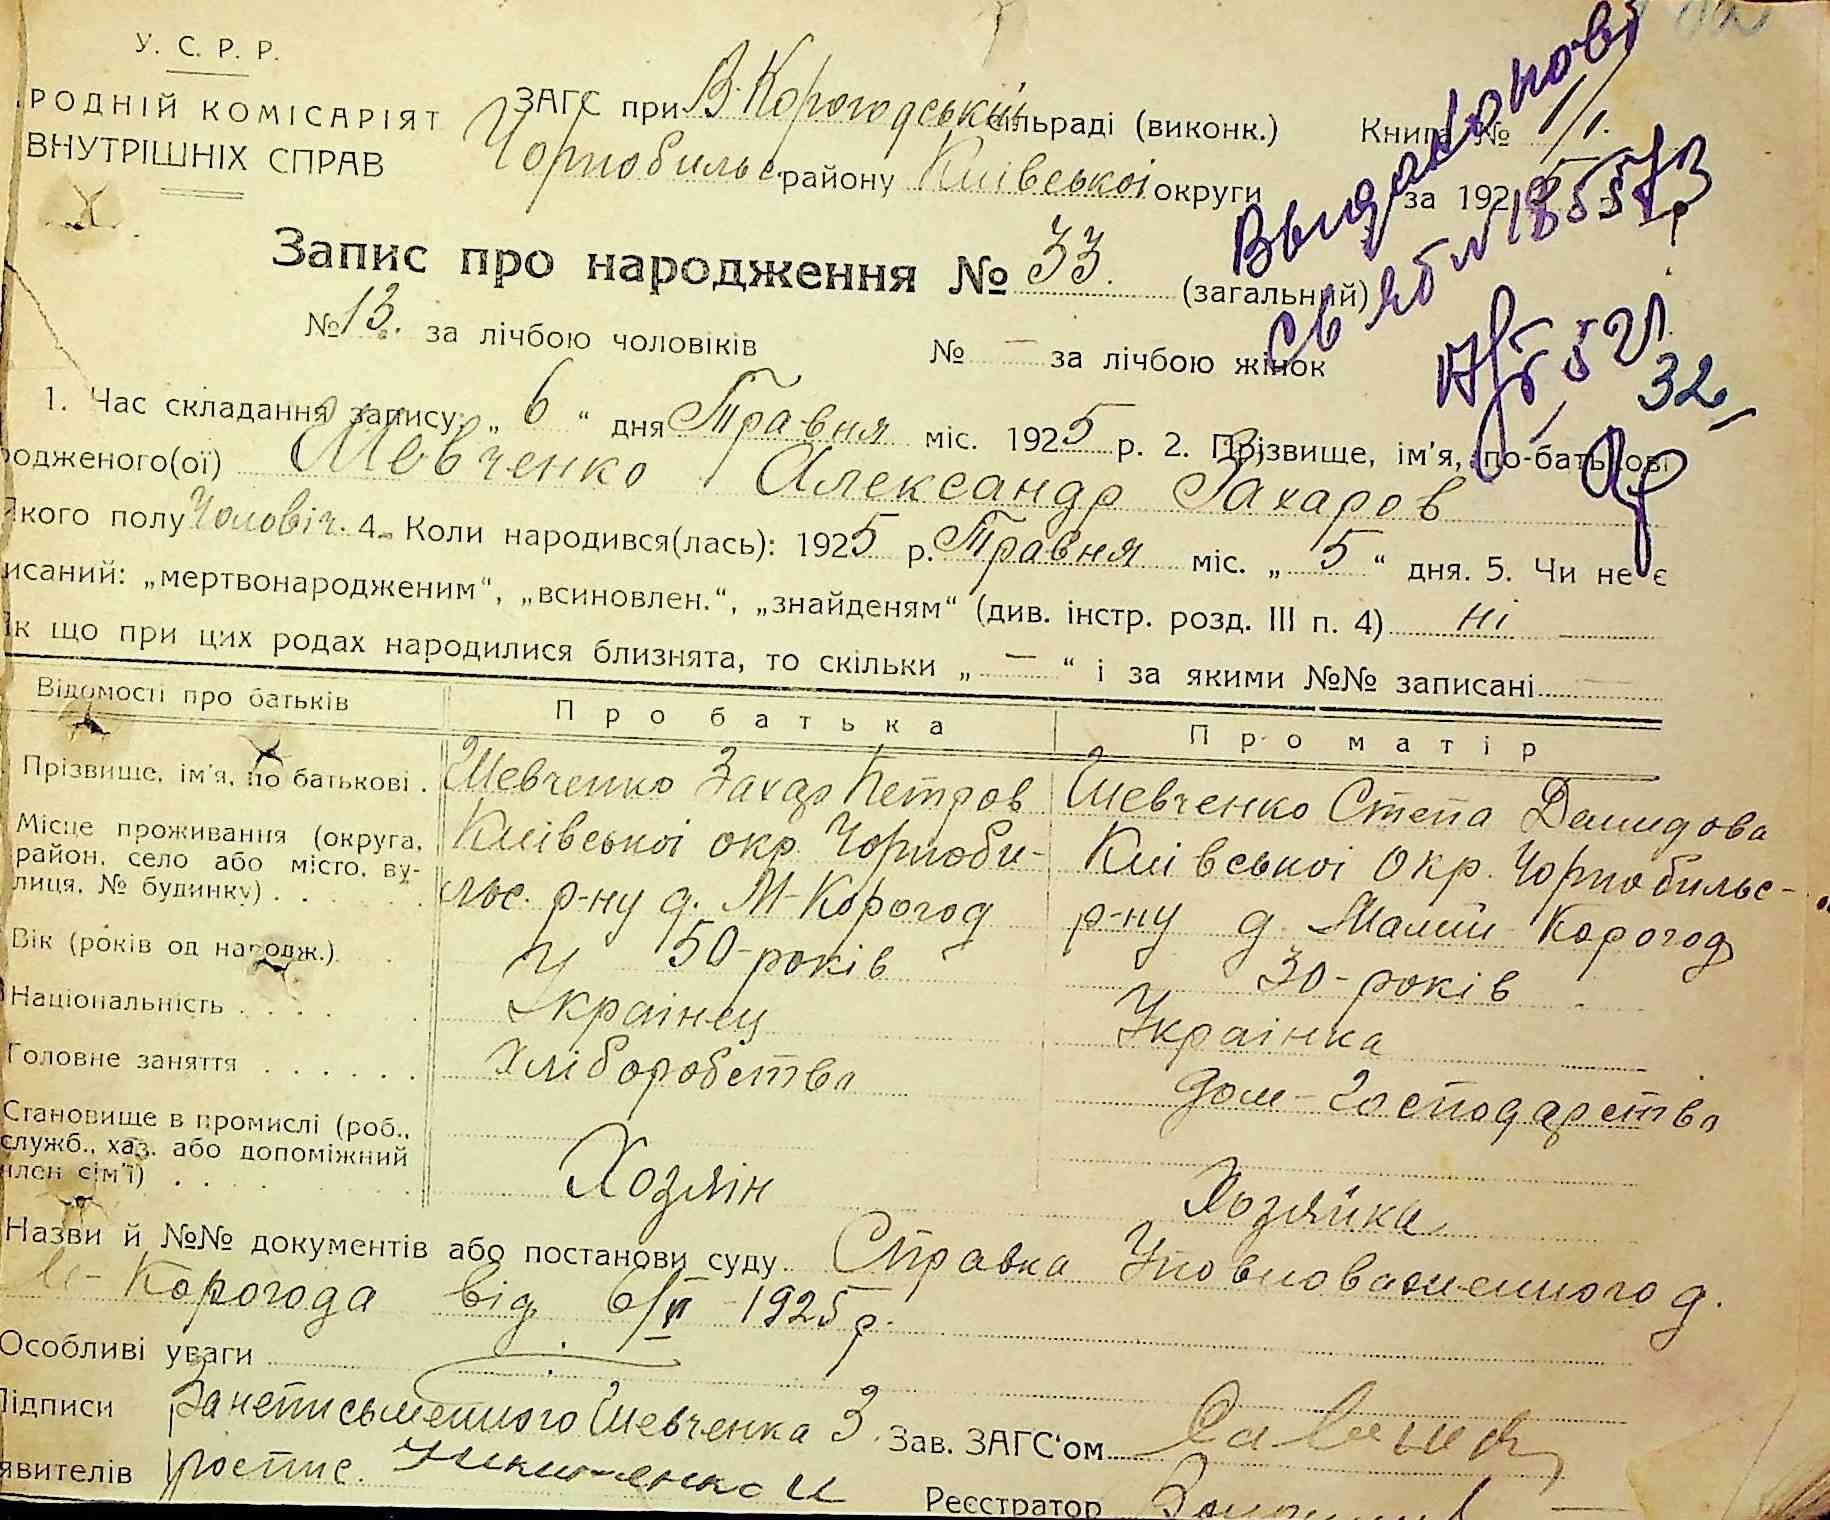 У. С. Р. Р.
РОДНІЙ КОМІСАРІЯТ
ВНУТРІШНІХ СПРАВ
ЗАГС при В-Корогодській сільраді (виконк.)
Чорнобильс. району Київської округи
Книга № 1/1.
за 1925
Запис про народження № 33. (загальний)
№ 13. за лічбою чоловіків № — за лічбою жінок
Выдано повт
Св № 185573
32
1. Час складання запису: „ 6 “ дня Травня міс. 1925 р. 2. Прізвище, ім'я, по-батькові
родженого(ої) Шевченко Александр Захаров
якого полу Чоловіч. 4. Коли народився(лась): 1925 р. Травня міс. „ 5 “ дня. 5. Чи не є
исаний: „мертвонародженим“, „всиновлен.“, „знайденям“ (див. інстр. розд. III п. 4) ні
Як що при цих родах народилися близнята, то скільки „ — “ і за якими №№ записані —
Відомості про батьків Про батька Про матір
Прізвище, ім'я, по батькові . Шевченко Захар Петров Шевченко Степа Демидова
Місце проживання (округа, район, село або місто, ву-лиця, № будинку) . . .
Київської окр. Чорноби-
льс. р-ну д. М-Корогод
Київської окр. Чорнобильс-
р-ну д. Малий Корогод
Вік (років од народж.) 50-років 30-років
Національність . . . . Українец Українка
Головне заняття . . . . . . Хліборобство дом-господарство
Становище в промислі (роб.,
служб., хаз. або допоміжний
член сім'ї) . . . . . Хозяін Хозяйка
Назви й №№ документів або постанови суду Справка Уповноваженного д.
М-Корогода від 6/V 1925 р.
Особливі уваги
Підписи За неписьменного Шевченка З. Зав. ЗАГС'ом
явителів роспис. Никитенко И Реєстратор